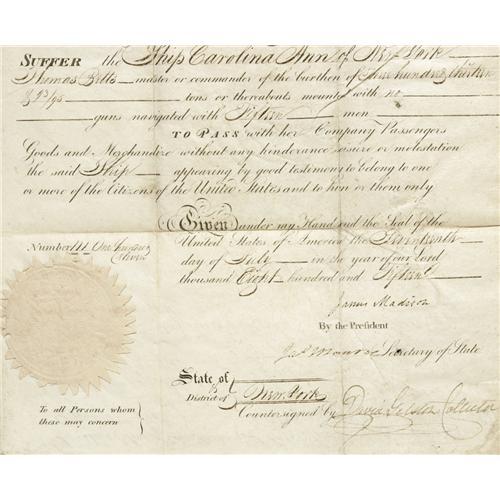 SUFFER the Ship Carolina Ann of New York
Thomas Betts master or commander of the burthen of Three hundred thirteen
& 93/95 tons or thereabouts mounted with no
guns navigated with Fifteen men
TO PASS with her Company Passengers
Goods and Merchandize without any hinderance seizure or molestation
the said Ship appearing by good testimony to belong to one
or more of the Citizens of the United States and to him or them only
Given under my Hand and the Seal of the
United States of America the Seventeenth
day of July in the year of our Lord
thousand Eight hundred and Fifteen
Number 111 One hundred
Eleven
James Madison
By the President
Jas Monroe Secretary of State
State of
District of New York
Countersigned by David Gelston Collector
To all Persons whom
these may concern